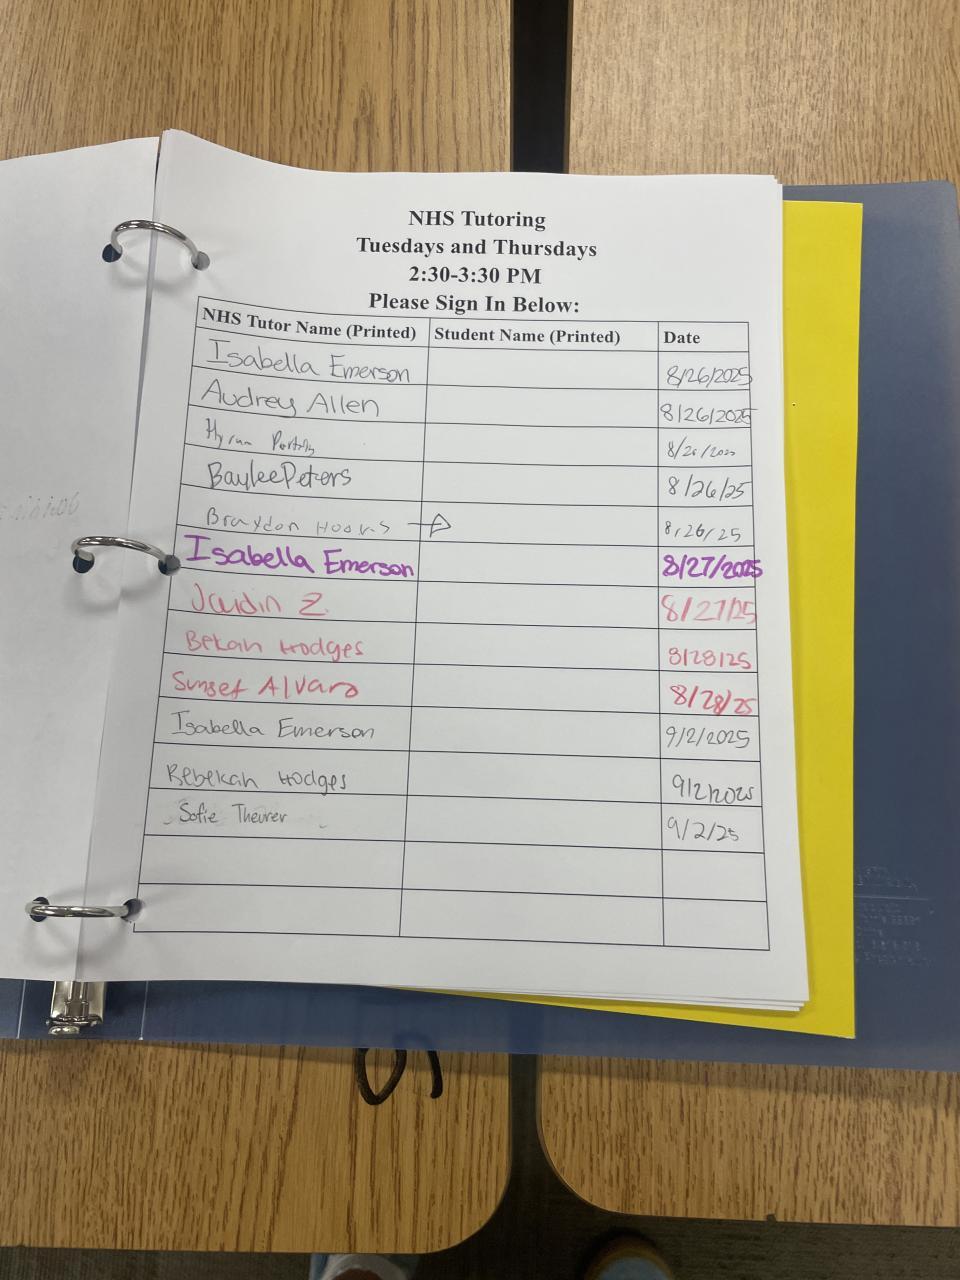 NHS Tutoring
Tuesdays and Thursdays
2:30-3:30 PM
Please Sign In Below:
NHS Tutor Name (Printed) Student Name (Printed) Date
Isabella Emerson 8/26/2025
Audrey Allen 8/26/2025
Hyrum
Baylee Peters 8/26/25
Braydon 8/26/25
Isabella Emerson 8/27/2025
Jaidin Z. 8/27/25
Bekah Hodges 8/28/25
Sunset Alvaro 8/28/25
Isabella Emerson 9/2/2025
Rebekah Hodges 9/2/2025
Sofie Theurer 9/2/25